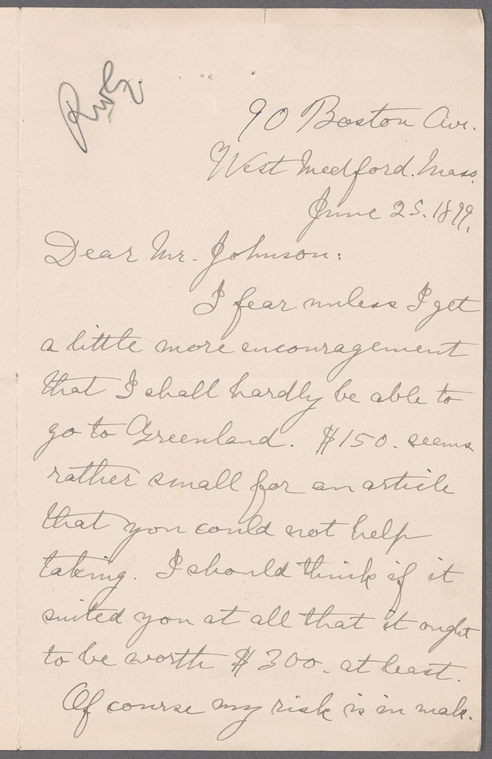 RWG.
90 Boston Ave.
West Medford. Mass.
June 25. 1899.
Dear Mr. Johnson:
I fear unless I get
a little more encouragement
that I shall hardly be able to
go to Greenland. $150. seems
rather small for an article
that you could not help
taking. I should think if it
suited you at all that it ought
to be worth $300. at least.
Of course my risk is in mak-